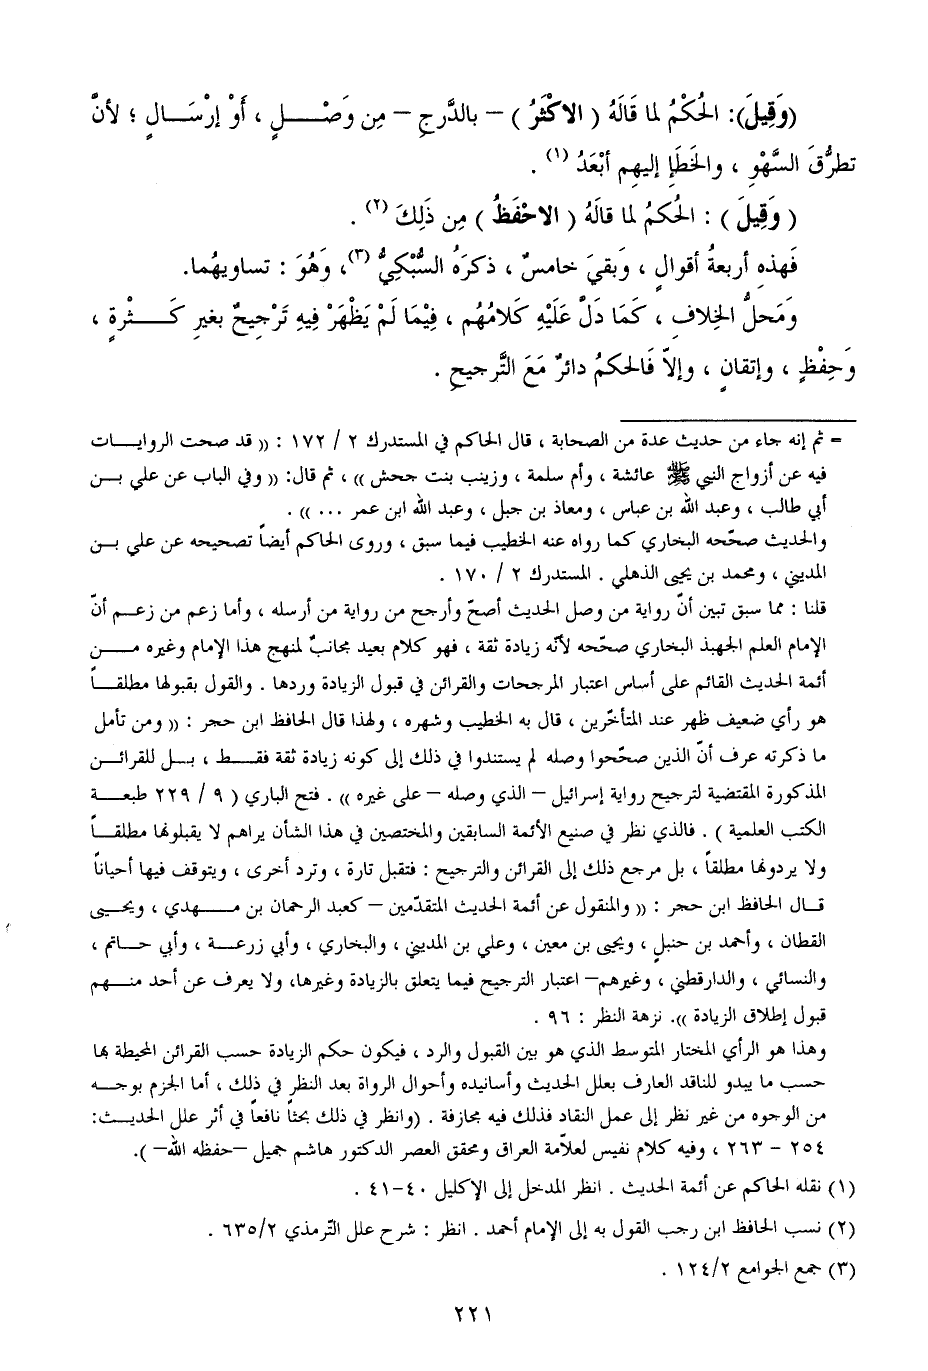 (وَقِيلَ): الحُكْمُ لما قَالَهُ ( الاكْثَرُ ) – بالدَّرجِ – مِن وَصْــلٍ ، أَوْ إرْسَــالٍ ؛ لأنَّ
تطرُّقَ السَّهْوِ ، والخَطَإِ إليهِم أبْعَدُ (١) .
( وَقِيلَ ) : الحُكمُ لما قالَهُ ( الاحْفَظُ ) مِن ذَلِكَ (٢) .
فَهذِهِ أربعةُ أقوالٍ ، وَبقيَ خامسٌ ، ذكرَهُ السُّبْكِيُّ (٣)، وَهُوَ : تساويهُما.
وَمَحلُّ الخِلافِ ، كَمَا دَلَّ عَلَيْهِ كَلامُهُم ، فِيْمَا لَمْ يَظْهَرْ فِيهِ تَرْجِيحٌ بغيرِ كَــثْرةٍ ،
وَحِفْظٍ ، وإتقانٍ ، وإلاّ فَالحكمُ دائرٌ مَعَ التَّرجيحِ .
= ثم إنه جاء من حديث عدة من الصحابة ، قال الحاكم في المستدرك ٢ / ١٧٢ : (( قد صحت الروايــات
فيه عن أزواج النبي ﷺ عائشة ، وأم سلمة ، وزينب بنت جحش )) ، ثم قال: (( وفي الباب عن علي بــن
أبي طالب ، وعبد الله بن عباس ، ومعاذ بن جبل ، وعبد الله ابن عمر ... )) .
والحديث صحّحه البخاري كما رواه عنه الخطيب فيما سبق ، وروى الحاكم أيضاً تصحيحه عن علي بــن
المديني ، ومحمد بن يحيى الذهلي . المستدرك ٢ / ١٧٠ .
قلنا : مما سبق تبين أنّ رواية من وصل الحديث أصحّ وأرجح من رواية من أرسله ، وأما زعم من زعــم أنّ
الإمام العلم الجهبذ البخاري صحّحه لأنّه زيادة ثقة ، فهو كلام بعيد مجانبٌ لمنهج هذا الإمام وغيره مــن
أئمة الحديث القائم على أساس اعتبار المرجحات والقرائن في قبول الزيادة وردها . والقول بقبولها مطلقــاً
هو رأي ضعيف ظهر عند المتأخّرين ، قال به الخطيب وشهره ، ولهذا قال الحافظ ابن حجر : (( ومن تأمل
ما ذكرته عرف أنّ الذين صحّحوا وصله لم يستندوا في ذلك إلى كونه زيادة ثقة فقــط ، بــل للقرائــن
المذكورة المقتضية لترجيح رواية إسرائيل – الذي وصله – على غيره )) . فتح الباري ( ٩ / ٢٢٩ طبعــة
الكتب العلمية ) . فالذي نظر في صنيع الأئمة السابقين والمختصين في هذا الشأن يراهم لا يقبلونها مطلقــاً
ولا يردونها مطلقاً ، بل مرجع ذلك إلى القرائن والترجيح : فتقبل تارة ، وترد أخرى ، ويتوقف فيها أحياناً
قــال الحافظ ابن حجر : (( والمنقول عن أئمة الحديث المتقدّمين – كعبد الرحمان بن مــهدي ، ويحيــى
القطان ، وأحمد بن حنبل ، ويحيى بن معين ، وعلي بن المديني ، والبخاري ، وأبي زرعــة ، وأبي حــاتم ،
والنسائي ، والدارقطني ، وغيرهم– اعتبار الترجيح فيما يتعلق بالزيادة وغيرها، ولا يعرف عن أحد منــهم
قبول إطلاق الزيادة )). نزهة النظر : ٩٦ .
وهذا هو الرأي المختار المتوسط الذي هو بين القبول والرد ، فيكون حكم الزيادة حسب القرائن المحيطة بها
حسب ما يبدو للناقد العارف بعلل الحديث وأسانيده وأحوال الرواة بعد النظر في ذلك ، أما الجزم بوجــه
من الوجوه من غير نظر إلى عمل النقاد فذلك فيه مجازفة . (وانظر في ذلك بحثاً نافعاً في أثر علل الحديــث:
٢٥٤ – ٢٦٣ ، وفيه كلام نفيس لعلاّمة العراق ومحقق العصر الدكتور هاشم جميل –حفظه الله– ).
(١) نقله الحاكم عن أئمة الحديث . انظر المدخل إلى الإكليل ٤٠–٤١ .
(٢) نسب الحافظ ابن رجب القول به إلى الإمام أحمد . انظر : شرح علل الترمذي ٢/٦٣٥ .
(٣) جمع الجوامع ٢/١٢٤ .
٢٢١